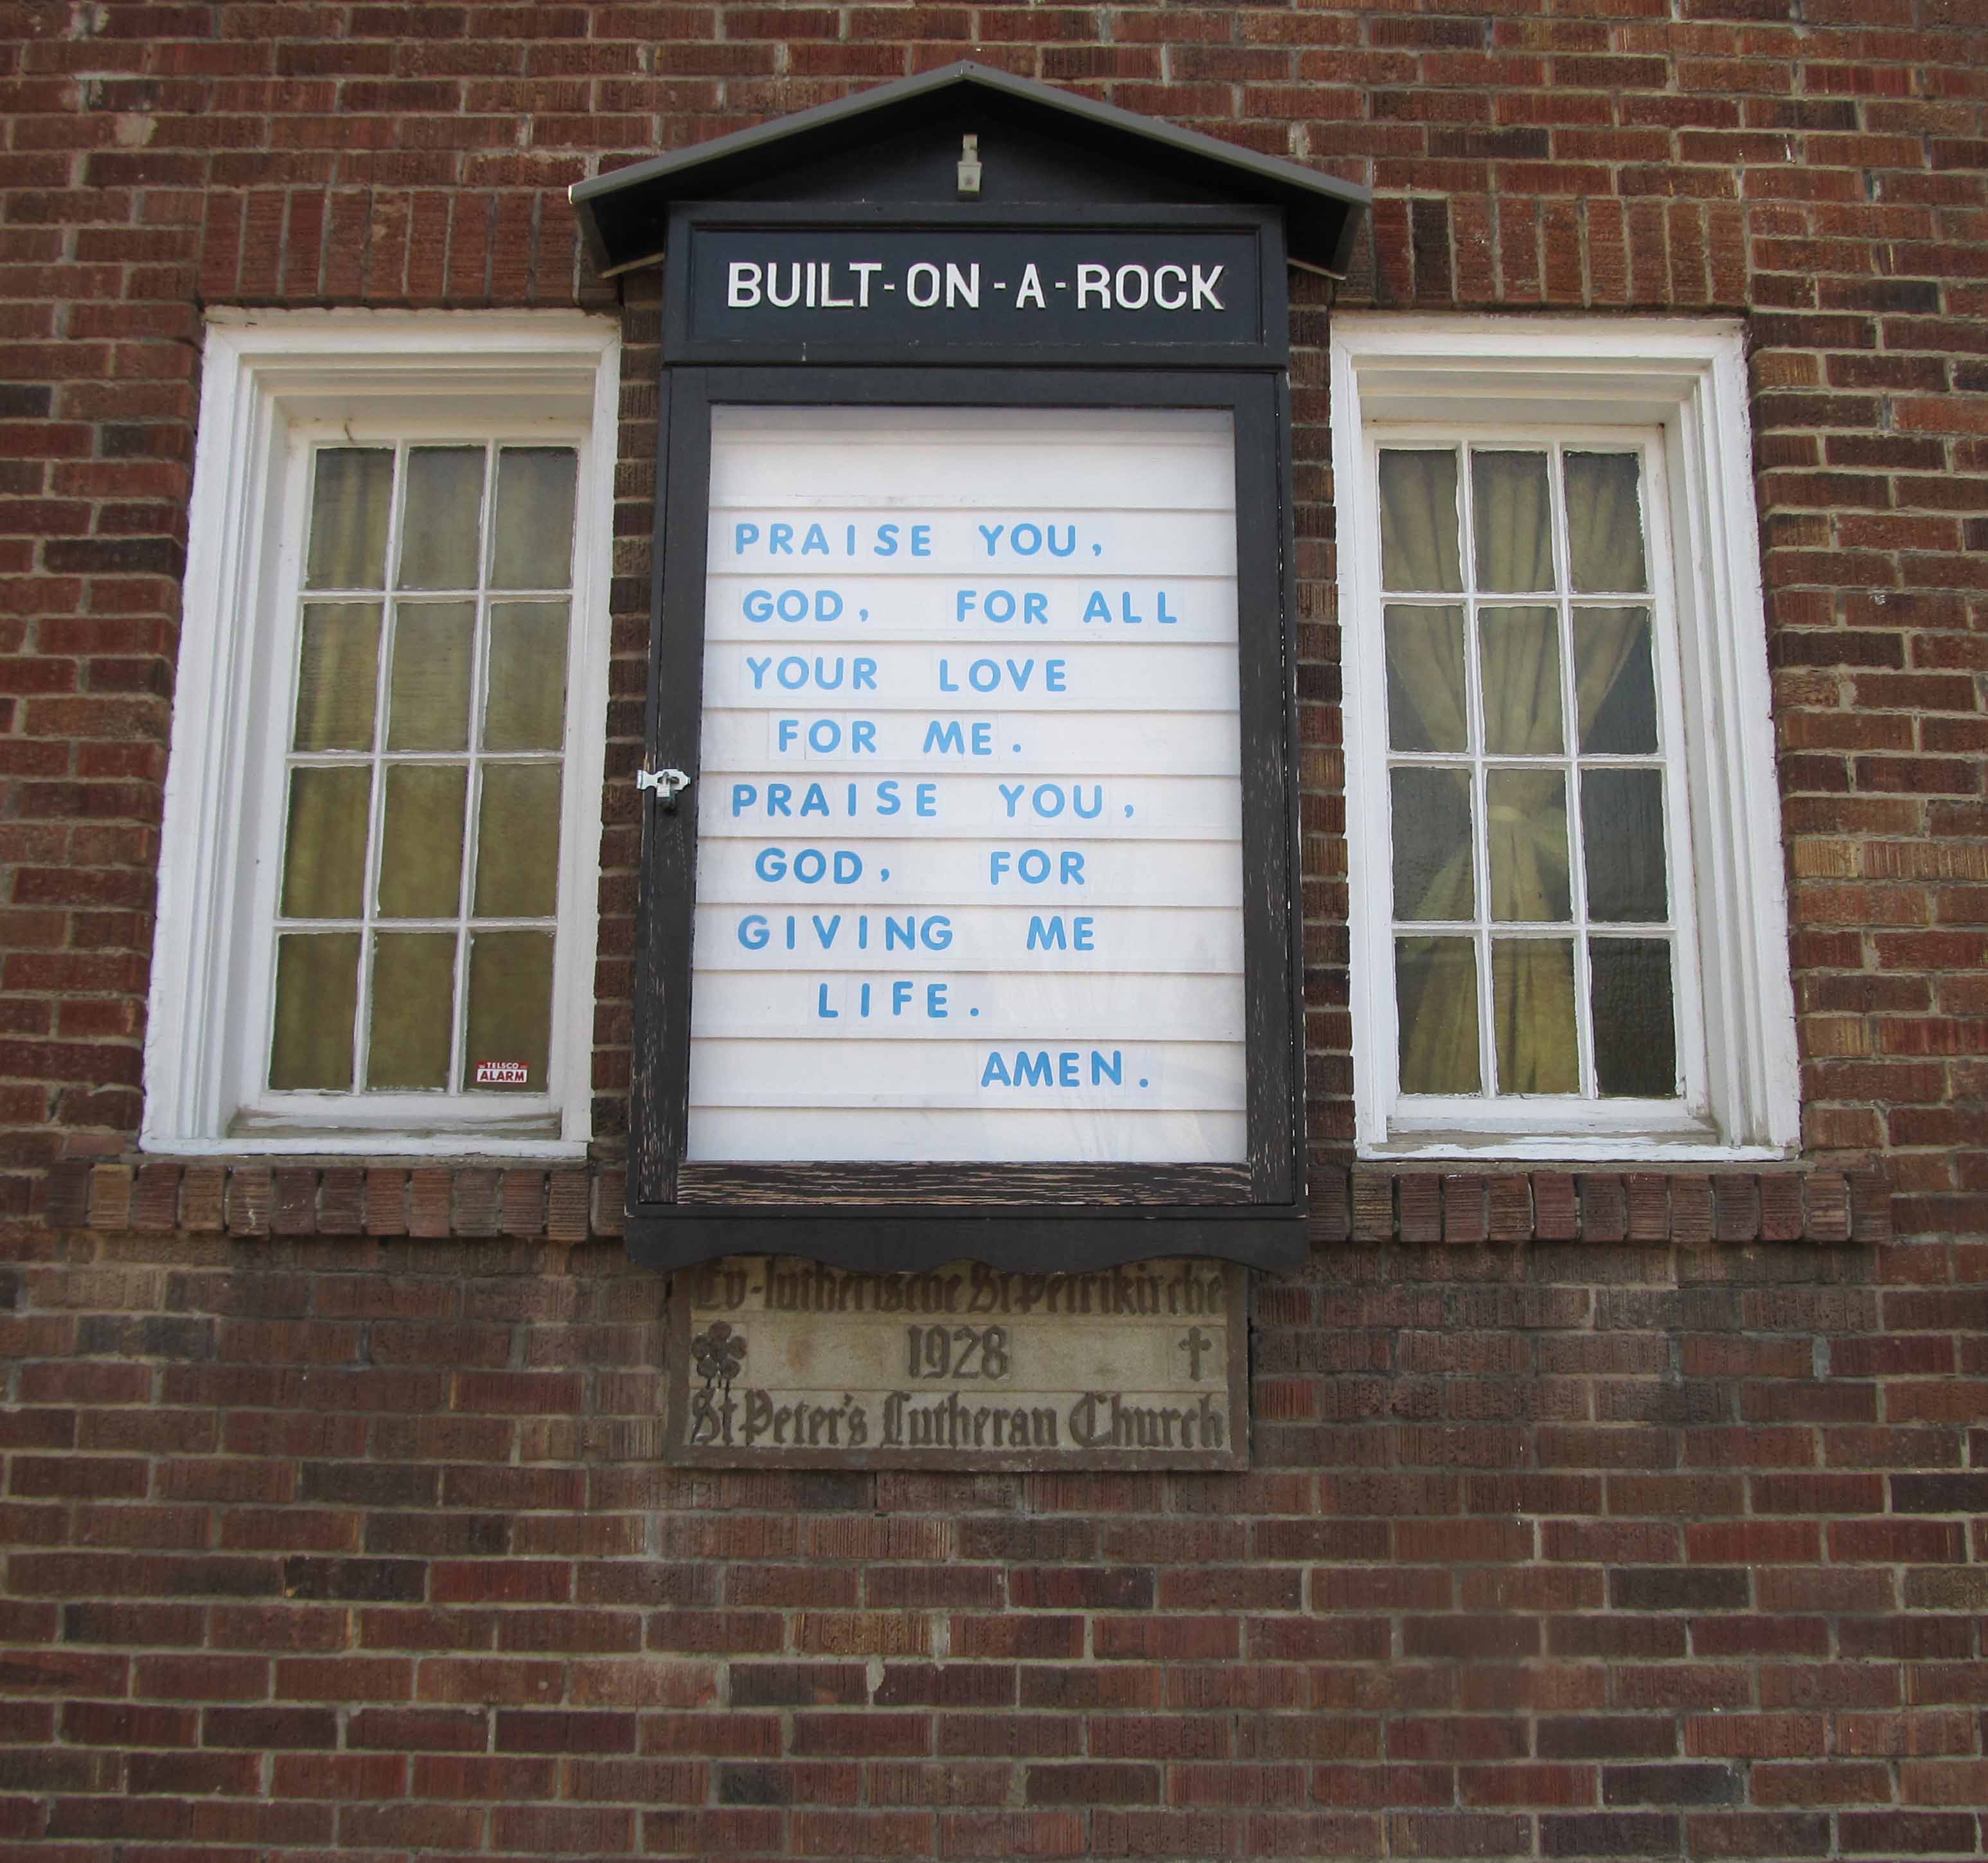 BUILT-ON-A-ROCK
PRAISE YOU,
GOD, FOR ALL
YOUR LOVE
FOR ME.
PRAISE YOU,
GOD, FOR
GIVING ME
LIFE.
AMEN.
TELSCO
ALARM
Ev-lutherische St Petrikirche
1928
St Peter's Lutheran Church